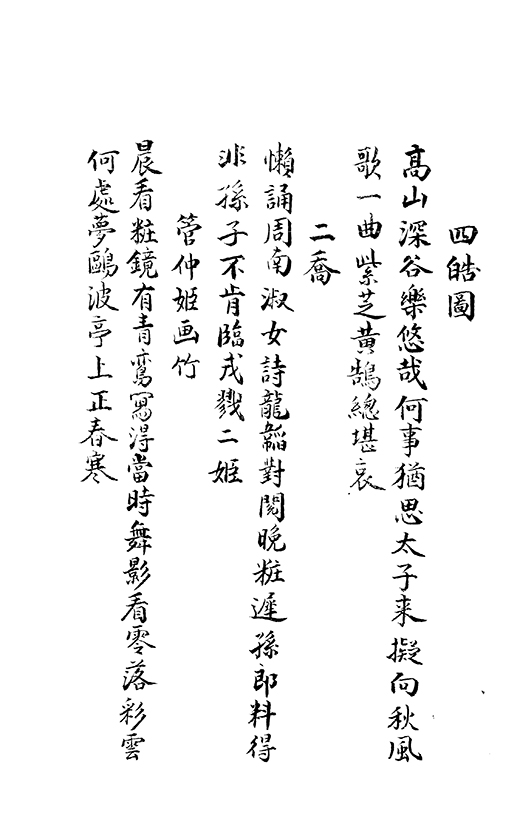 四皓圖
高山深谷樂悠哉何事猶思太子来擬向秋風
歌一曲紫芝黄鵠總堪哀
二喬
懶誦周南淑女詩龍韜對閱晚粧遲孫郎料得
非孫子不肯臨戎戮二姬
管仲姬画竹
晨看粧鏡有青鸞寫得當時舞影看零落彩雲
何處夢鷗波亭上正春寒